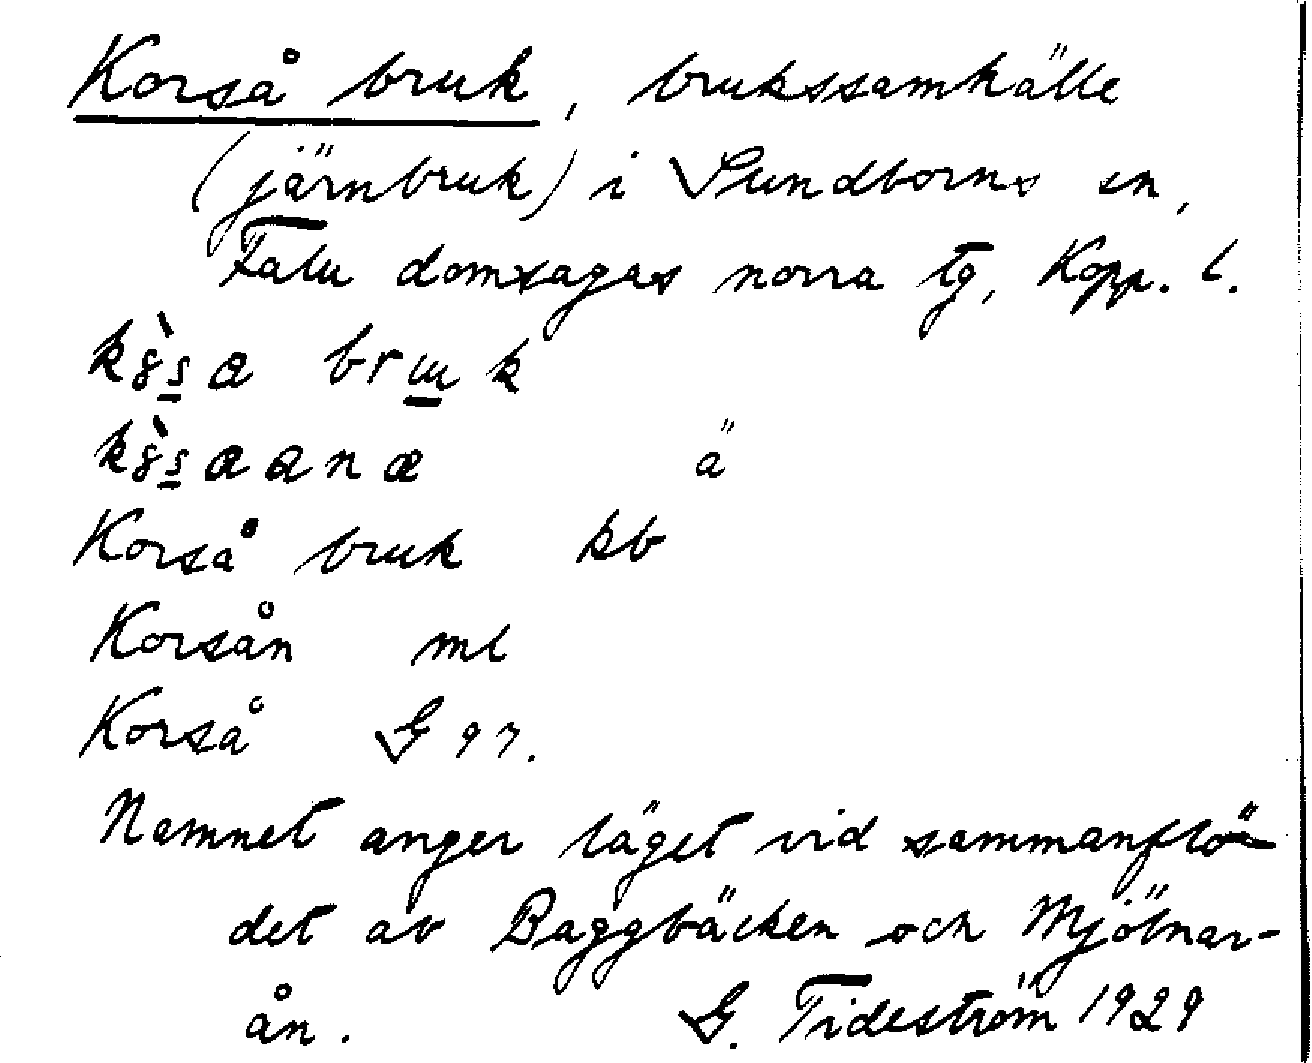 Korså bruk, brukssamhälle
(järnbruk) i Sundborns sn,
Falu domsagas norra tg, Kopp. l.
bruk
ä
Korså bruk kb
Korsån ml
Korså G 97.
Namnet anger läget vid sammanflö-
det av Baggbäcken och Mjölnar-
ån. G. Tideström 1929